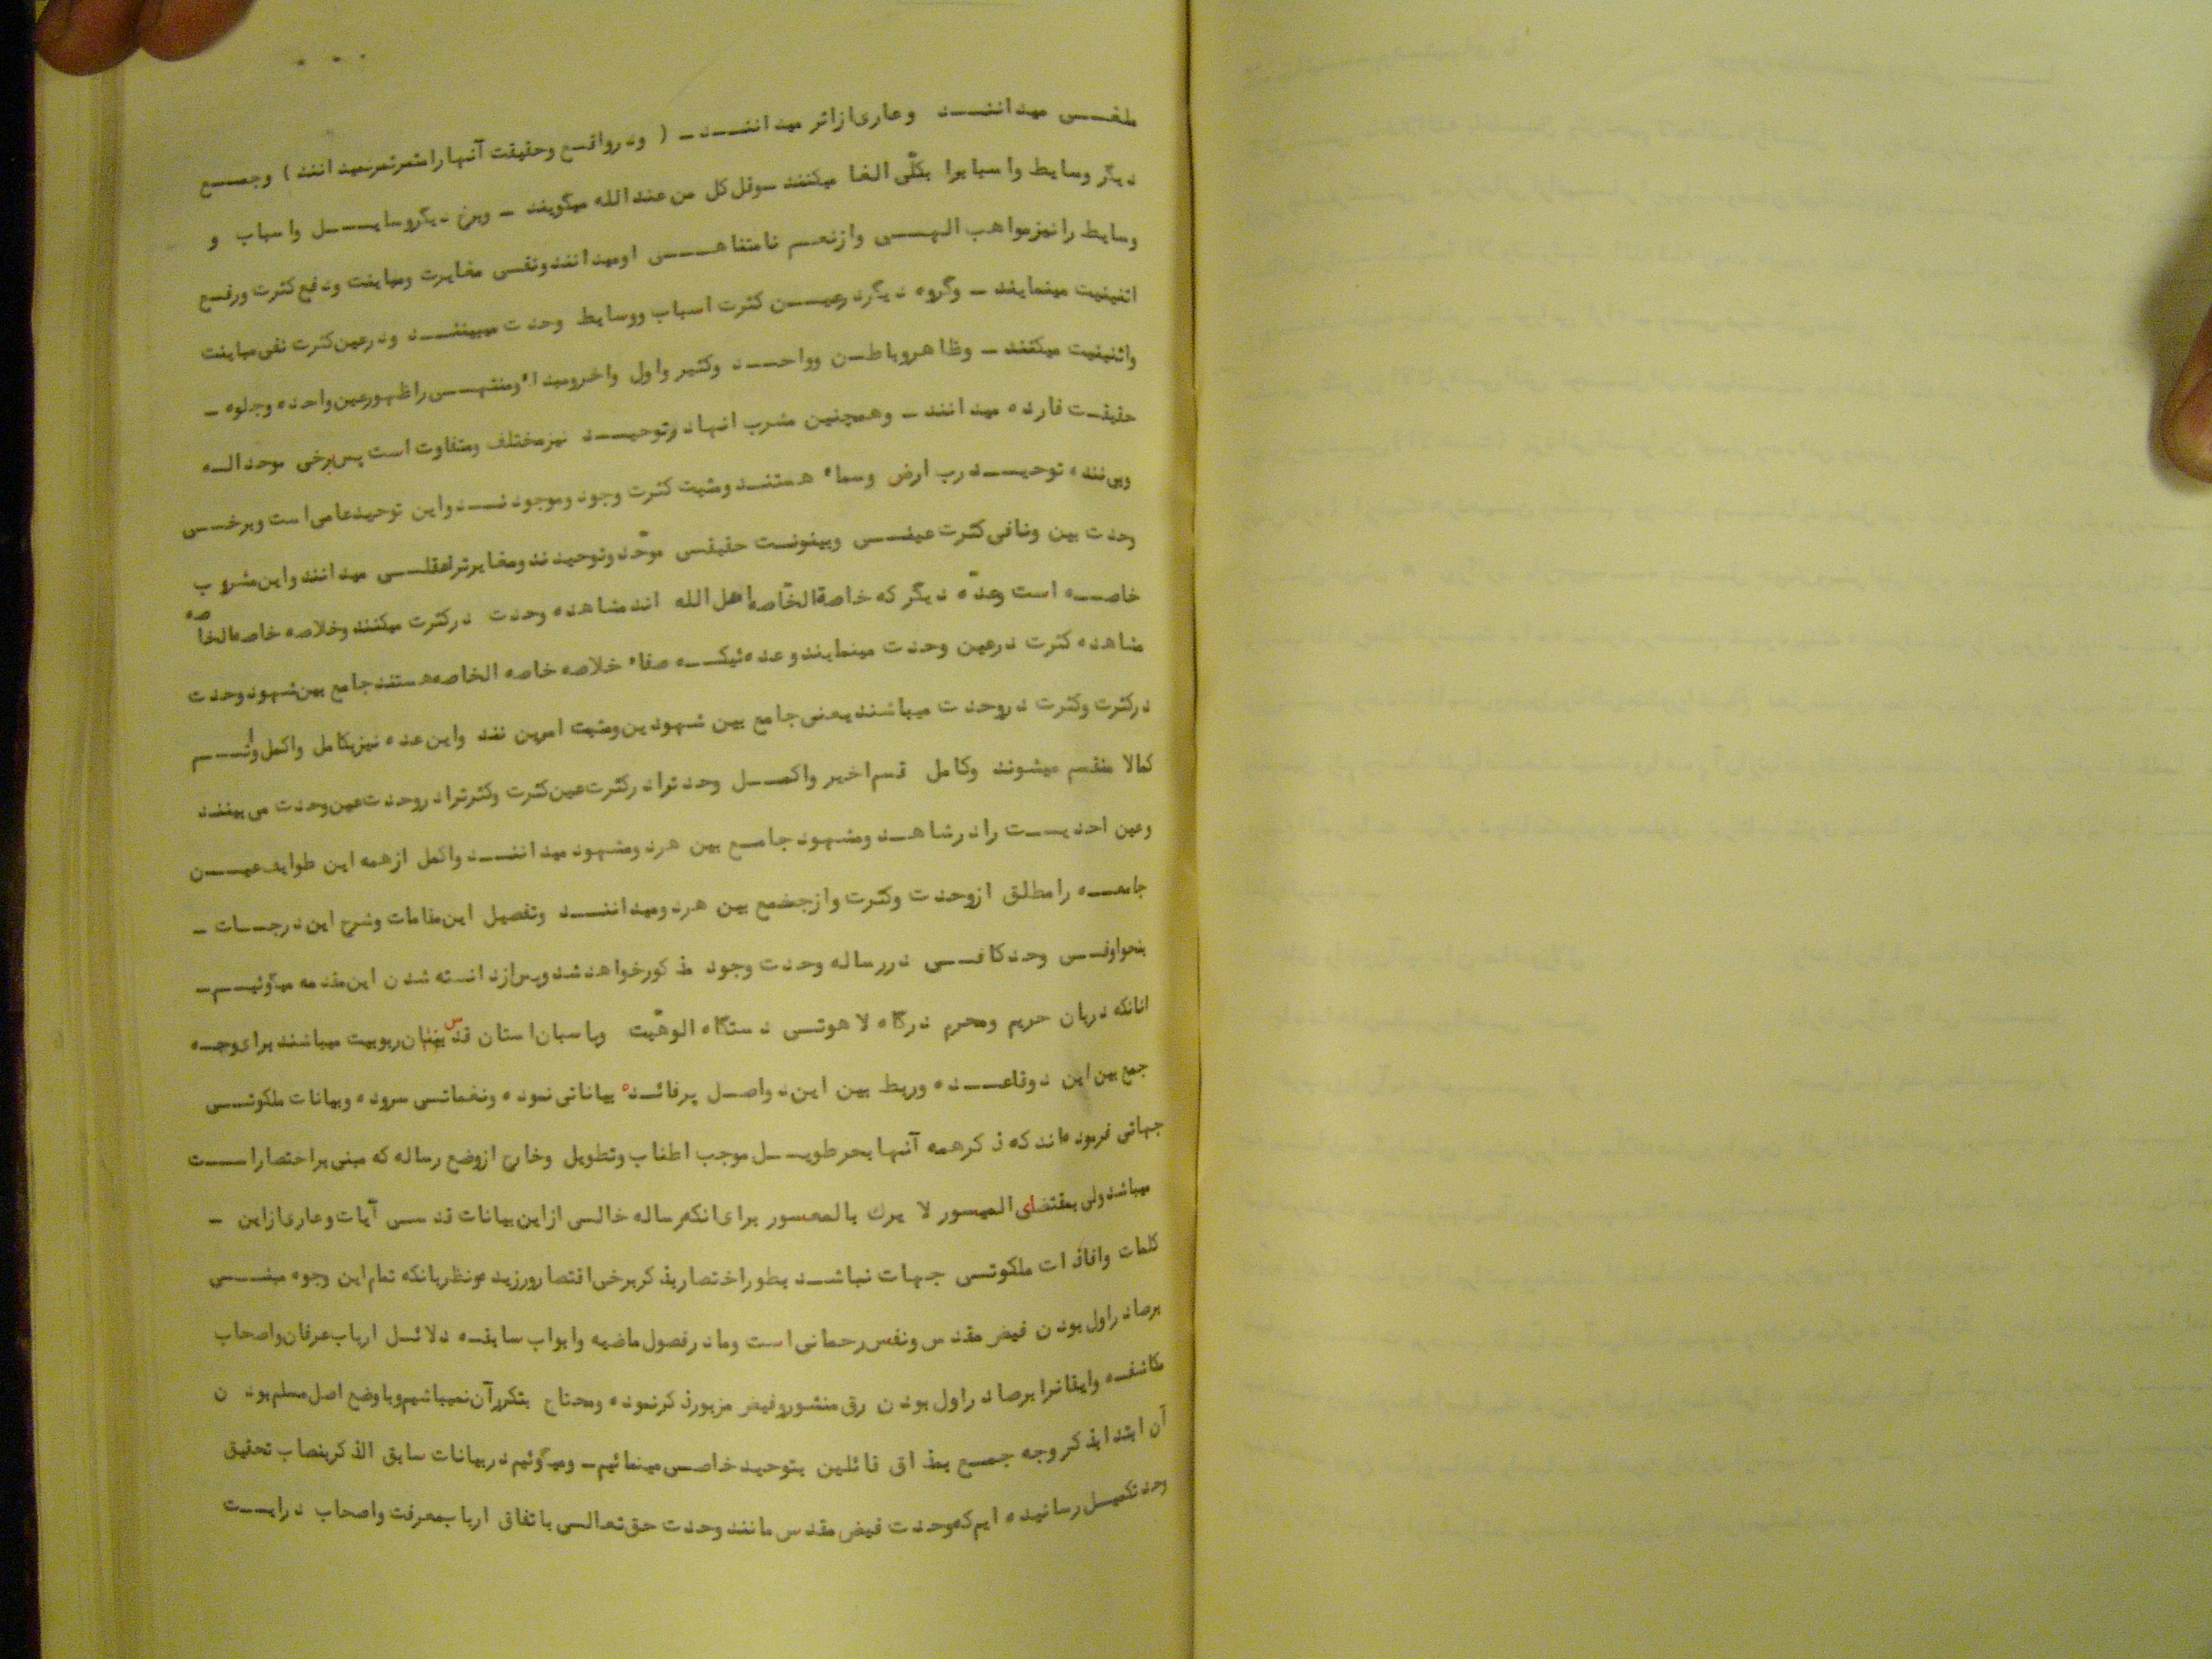 ملغـــی میدانـنــد وعاری ازاثر میدانـنــد ــ ( ودرواقـع وحقیقت آنهارا متمرثمرنمیدانند ) وجمــع
دیگر وسایط واسبابرا بکلّی الغا میکنند سوقل کل من عندالله میگویند ــ وبرخ دیگروسایــل واسباب و
وسایط رانیزمواهب الهــی وازنعـم نامتناهــی اومیدانندونفی مغایرت ومباینت ودفع کثرت ورفـع
اثنینیت مینمایند ــ وگروه دیگردرعیــن کثرت اسباب ووسایط وحدت میبیننــد ودرعین کثرت نفی مباینت
واثنینیت میکنند ــ وظاهروباطـن وواحــد وکثیر واول واخرومبداء ومنتهــی راظهورعین واحده وجلوه ــ
حقیقـت فارده میدانند ــ وهمچنین مشرب انهادرتوحیــد نیزمختلف ومتفاوت است پس برخی موحدالـه
وبی‌ننده توحیــدرب ارض وسماء هستنـدومثبت کثرت وجود وموجودنــدواین توحیدعامی است وبرخــی
وحدت بین ونافی کثرت عینــی وبینونـت حقیقـی موحّد وتوحیدندومغایرتراعقلــی میدانندواین مشروب
خاصــه است وعدّه دیگر که خاصةالخاصه اهل الله اندمشاهده وحدت درکثرت میکنند وخلاصه خاصه الخاصه
مشاهده کثرت درعین وحدت مینمایندوعده‌ئیکــه صفاء خلاصه خاصه الخاصه هستندجامع بین شهودوحدت
درکثرت وکثرت دروحدت میباشندیعنی جامع بین شهودین ومثبت امرین نند واین عده نیزبکامل واکمل واتــم
کمالا منقسم میشوند وکامل قسم اخیر واکمــل وحدتراد رکثرت عین کثرت وکثرتراد روحدت عین وحدت می بیننـد
وعین احدیــت رادرشاهـد ومشهود جامـع بین هردومشهود میدانـنــد واکمل ازهمه این طوایف عیــن
جامعــه رامطلق ازوحدت وکثرت وازجمع بین هردومیدانـنــد وتفصیل این مقامات وشرح این درجـات ــ
بنحواوفــی وحدکافــی دررساله وحدت وجود مذکورخواهدشدوپس ازدانسته شدن این مقدمه میگوئیــم ــ
انانکه دربان حریم ومحرم درگاه لاهوتــی دستگاه الوهیّت وپاسبان استان قدس بنیان ربوبیت میباشند برای وجـه
جمع بین این دوقاعــده وربط بین این دواصـل پرفائـده بیاناتی نموده ونغماتـی سروده وبیانات ملکوتــی
جهاتی فرموده‌اندکه ذکرهمه آنهابحرطویــل موجب اطناب وتطویل وخارج ازوضع رساله که مبنی براختصاراســت
میباشدولی بمقتضای المیسور لا یرك بالمعسور برای انکه رساله خالـی ازاین بیانات قدسـی آیات وعاری ازاین ــ
کلمات وافاذات ملکوتـی جهات نباشـد بطوراختصاربذکربرخی اقتصارورزیده ونظربانکه تمام این وجوه مبنــی
برصادراول بودن فیض مقدس ونفس رحمانی است ومادرفصول ماضیه وابواب سابقـه دلائـل ارباب عرفان واصحاب
مکاشفـه وایقانرا برصادراول بودن رق منشوروفیض مزبورذکرنموده ومحتاج بتکررآن نمیباشیم وباوضع اصل مسلم بود ن
آن ابتدابذکروجه جمـع بمذاق قائلین بتوحیدخاصـی مینمائیم ــ ومیگوئیم دربیانات سابق الذکربنصاب تحقیق
وحدتکمیـل رسانیده ایم که وحدت فیض مقدس مانندوحدت حق تعالـی باتفاق ارباب معرفت واصحاب درایــت